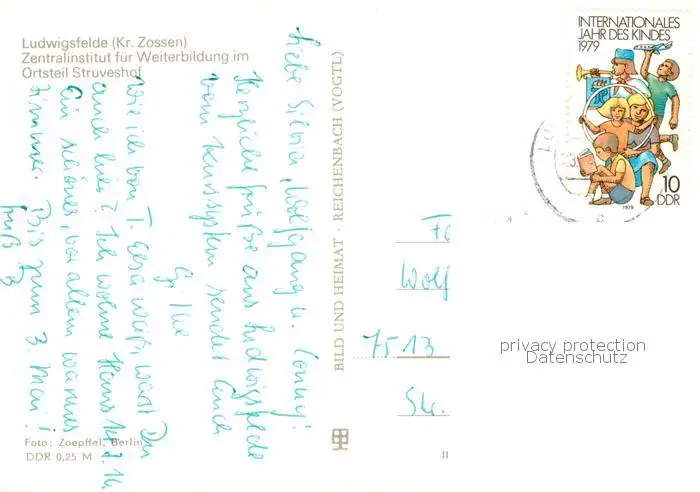 Ludwigsfelde (Kr. Zossen)
Zentralinstitut für Weiterbildung im
Ortsteil Struveshof
Liebe Silvia, Wolfgang u. Conny!
Herzliche Grüße aus Ludwigsfelde
vom Kurssystem sendet Euch
Wie ich von T. Gesa weiß, warst Du
auch hier? Ich wohne Haus 14 Z. 16
Ein schönes, vor allem warmes
Zimmer. Bis zum 3. Mai!
Gruß
Foto: Zoepffel, Berlin
DDR 0,25 M
BILD UND HEIMAT · REICHENBACH (VOGTL)
INTERNATIONALES
JAHR DES KINDES
1979
10
DDR
1979
Wolf
7513
Str.
II
privacy protection
Datenschutz